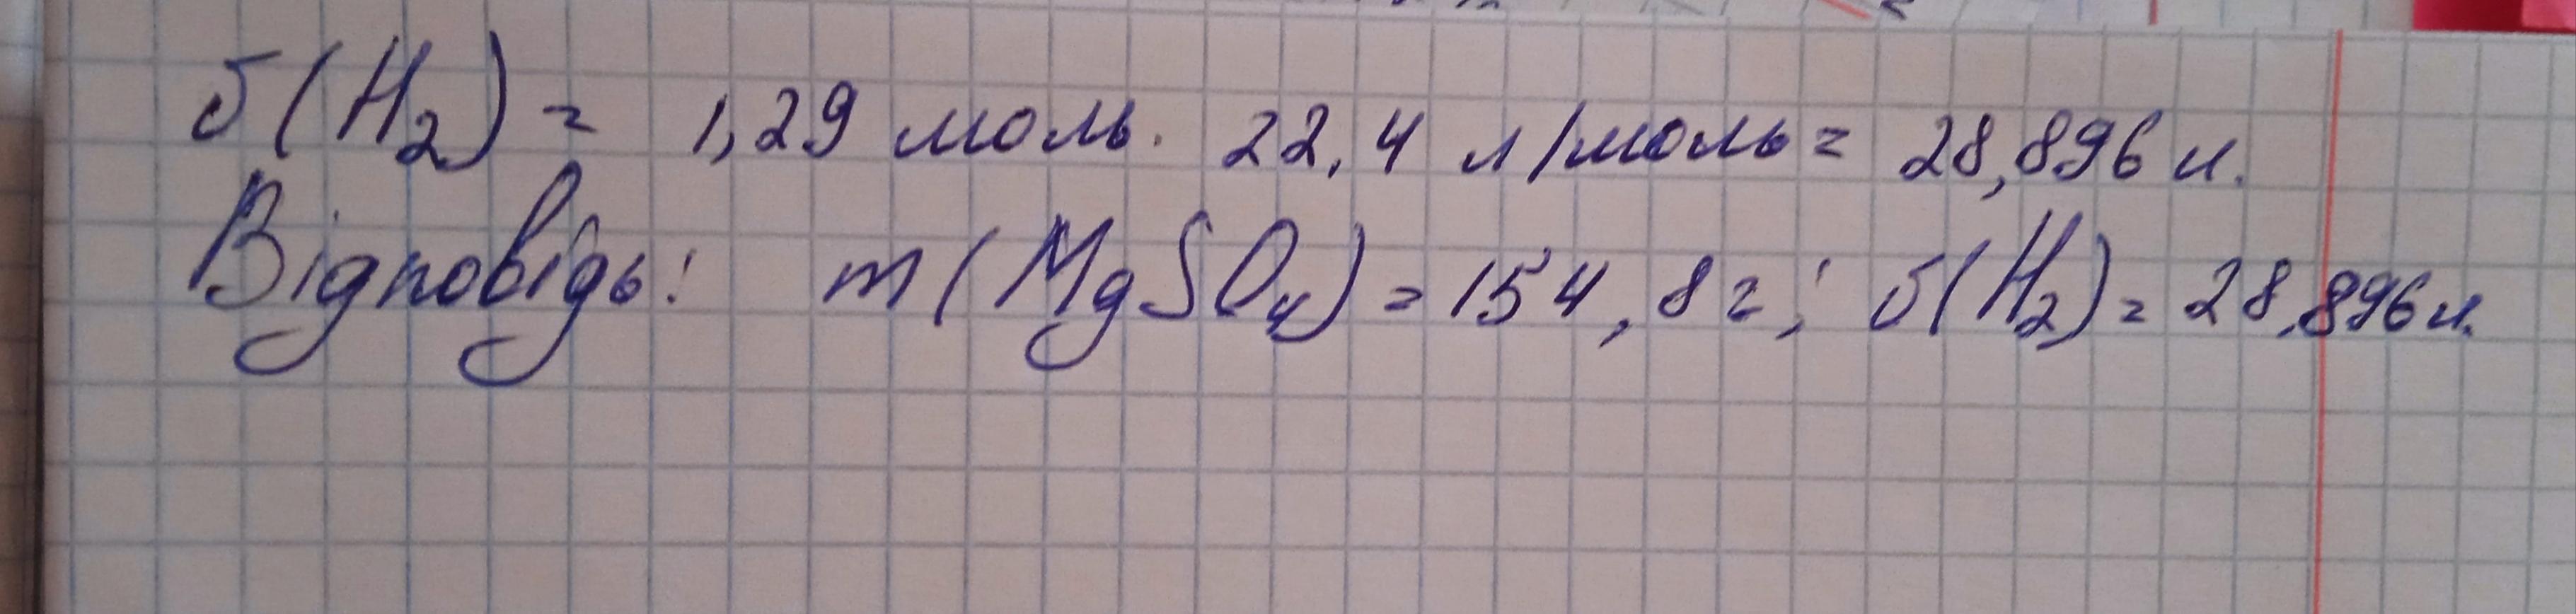 V(H₂) = 1,29 моль · 22,4 л/моль = 28,896 л.
Відповідь: m(MgSO₄) = 154,8г; V(H₂) = 28,896л.